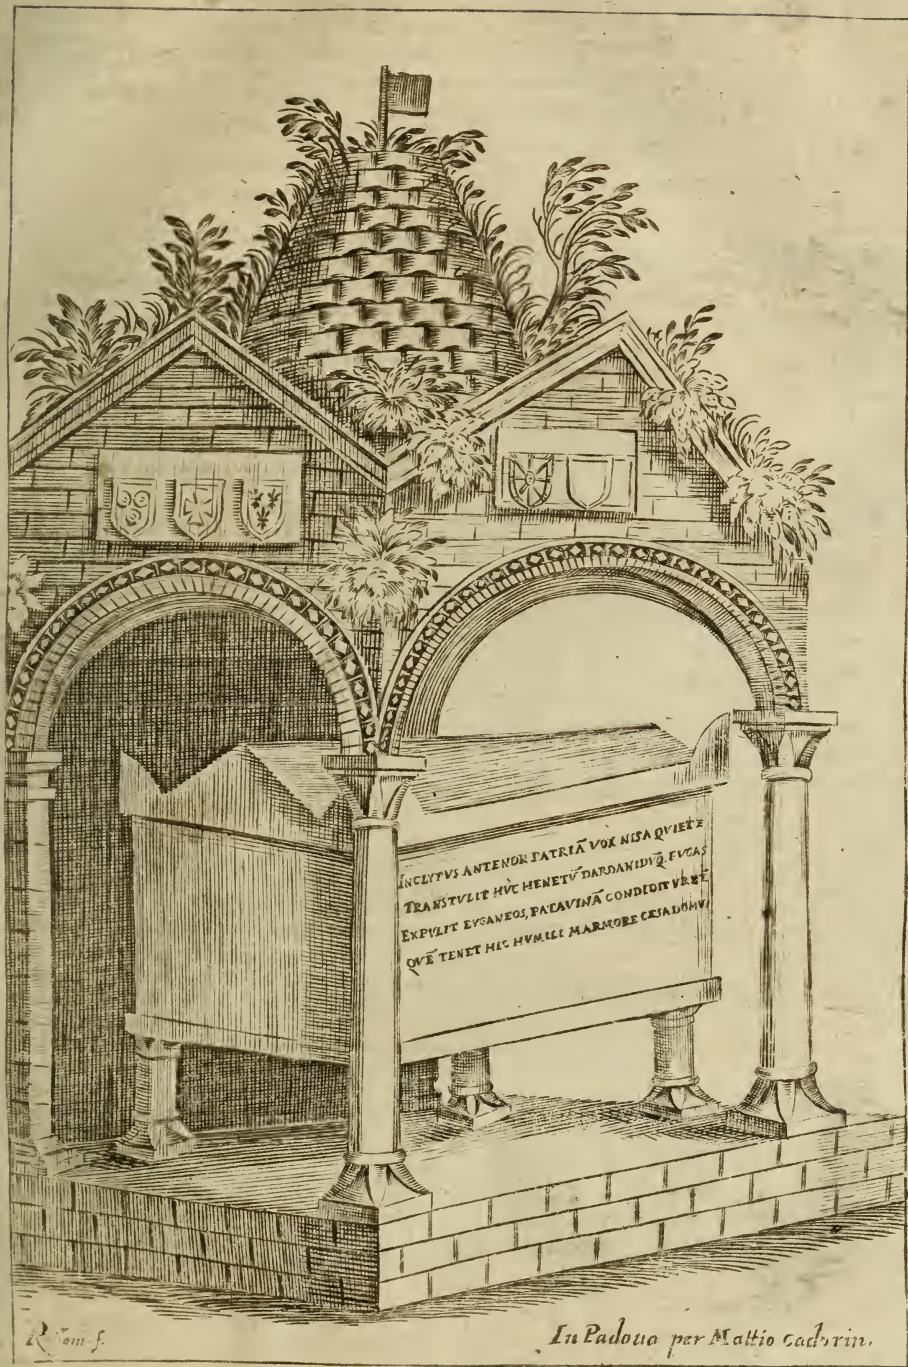 INCLYTVS ANTENOR PATRIĀ VOX NISA QVIETĒ
TRANSTVLIT HVC HENETV̄ DARDANIDVQ̄, FVGAS
EXPVLIT EVGANEOS, PATAVINĀ CONDIDIT VRBĒ
QVĒ TENET HIC HVMILI MARMORE CESA DOMVS
R f.
In Padoua per Mattio Cadorin.